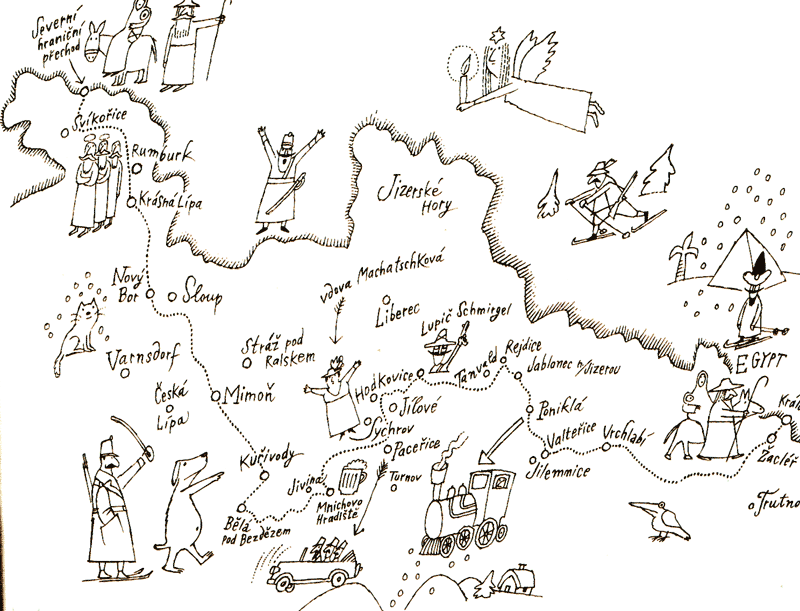 Severní
hraniční
přechod
Svíkořice
Rumburk
Krásná Lípa
Jizerské
Hory
Nový
Bor
Sloup
vdova Machatschková
Liberec
Lupič Schmirgel
Varnsdorf
Stráž pod
Ralskem
Hodkovice
Tanvald
Rejdice
Jablonec n/Jizerou
EGYPT
Česká
Lípa
Mimoň
Jílové
Sychrov
Poniklá
Králi
Valteřice
Vrchlabí
Paceřice
Žacléř
Kuřivody
Jilemnice
Turnov
Jiviná
Mnichovo
Hradiště
Trutno
Bělá
pod Bezdězem